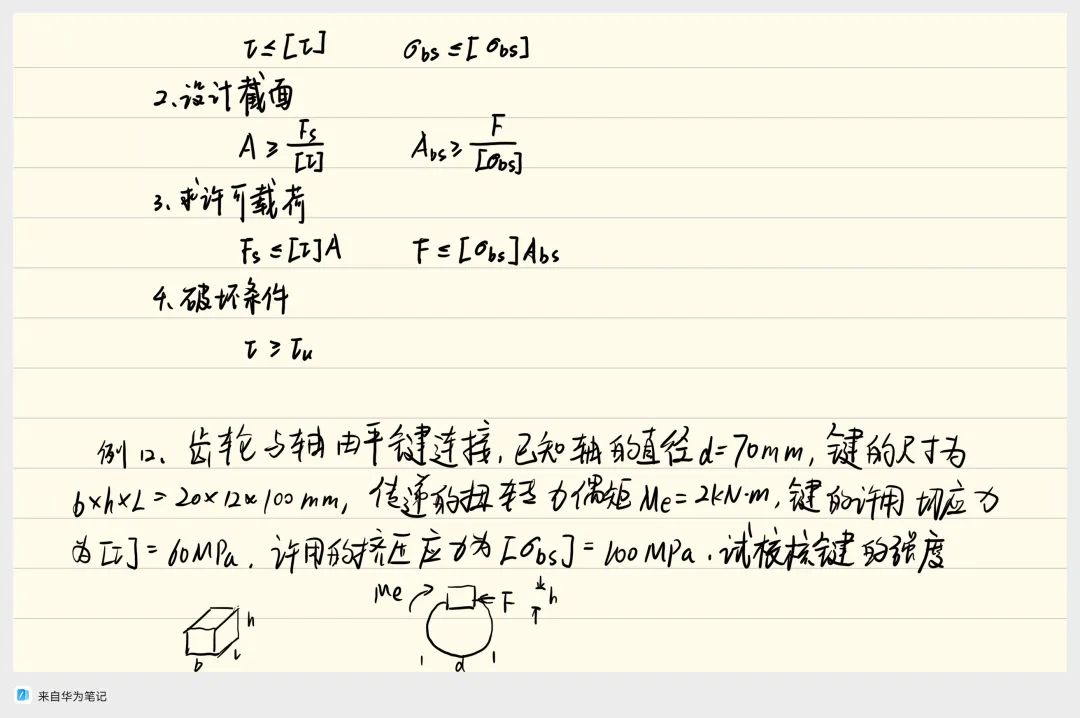 τ≤[τ] σbs≤[σbs]
2、设计截面
A≥Fs/[τ] Abs≥F/[σbs]
3、求许可载荷
Fs≤[τ]A F≤[σbs]Abs
4、破坏条件
τ≥τu
例12、齿轮与轴由平键连接,已知轴的直径d=70mm,键的尺寸为
b×h×L=20×12×100mm,传递的扭转力偶矩Me=2kN·m,键的许用切应力
为[τ]=60MPa,许用的挤压应力为[σbs]=100MPa.试校核键的强度
Me F h
h
b L d
来自华为笔记